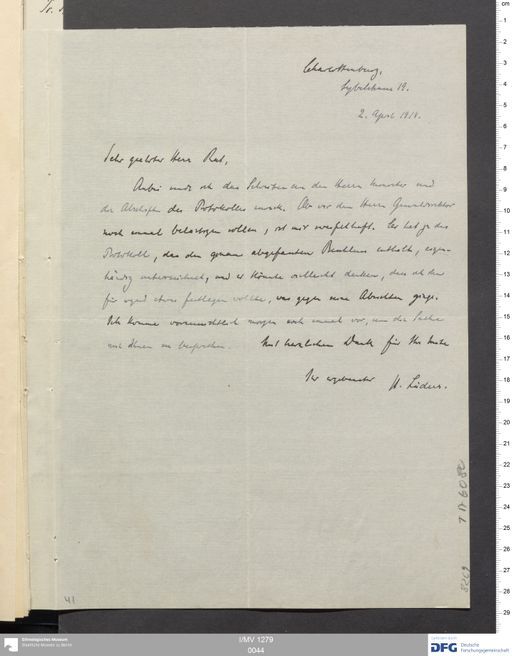 Charlottenburg,
Sybelstrasse 19.
2. April 1914.
Sehr geehrter Herr Rat,
Anbei sende ich das Schreiben an den Herrn Minister und
die Abschrift des Protokolles zurück. Ob wir den Herrn Generaldirektor
noch einmal belästigen sollen, ist mir zweifelhaft. Er hat ja das
Protokoll, das den genauen abgefassten Beschluss enthält, eigen-
händig unterzeichnet, und er könnte vielleicht denken, dass ich ihn
für irgend etwas festlegen wollte, was gegen seine Absichten ginge.
Ich komme voraussichtlich morgen noch einmal vor, um die Sache
mit Ihnen zu besprechen. Mit herzlichem Dank für Ihr
Ihr ergebenster H. Lüders.
I A 6080
41
Ethnologisches Museum
Staatliche Museen zu Berlin
I/MV 1279
0044
DFG Deutsche
Forschungsgemeinschaft